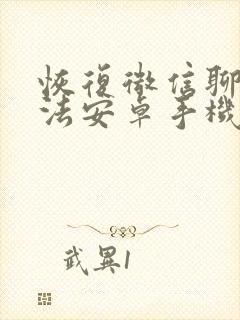 恢復微信聊
法安卓手機
武異1